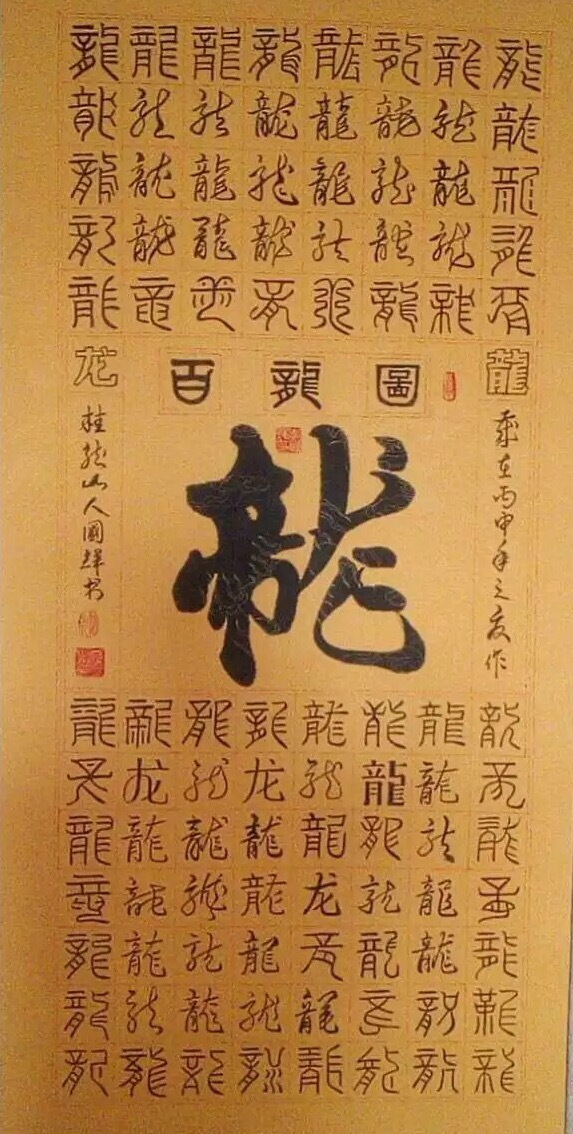 龍龍龍龍龍龍龍龍
龍龍龍龍龍龍龍龍
龍龍龍龍龍龍龍龍
龍龍龍龍龍龍龍龍
龍龍龍龍龍龍龍龍
龙
百龍圖
龍
龍
歲在丙申年之夏作
桂龍山人國輝书
龍龍龍龍龍龍龍龍
龍龙龍龙龍龍龍龍
龍龍龍龍龍龍龍龍
龍龍龍龍龙龍龍龍
龍龍龍龍龍龍龍龍
龍龍龍龍龍龍龍龍
龍龍龍龍龍龍龍龍